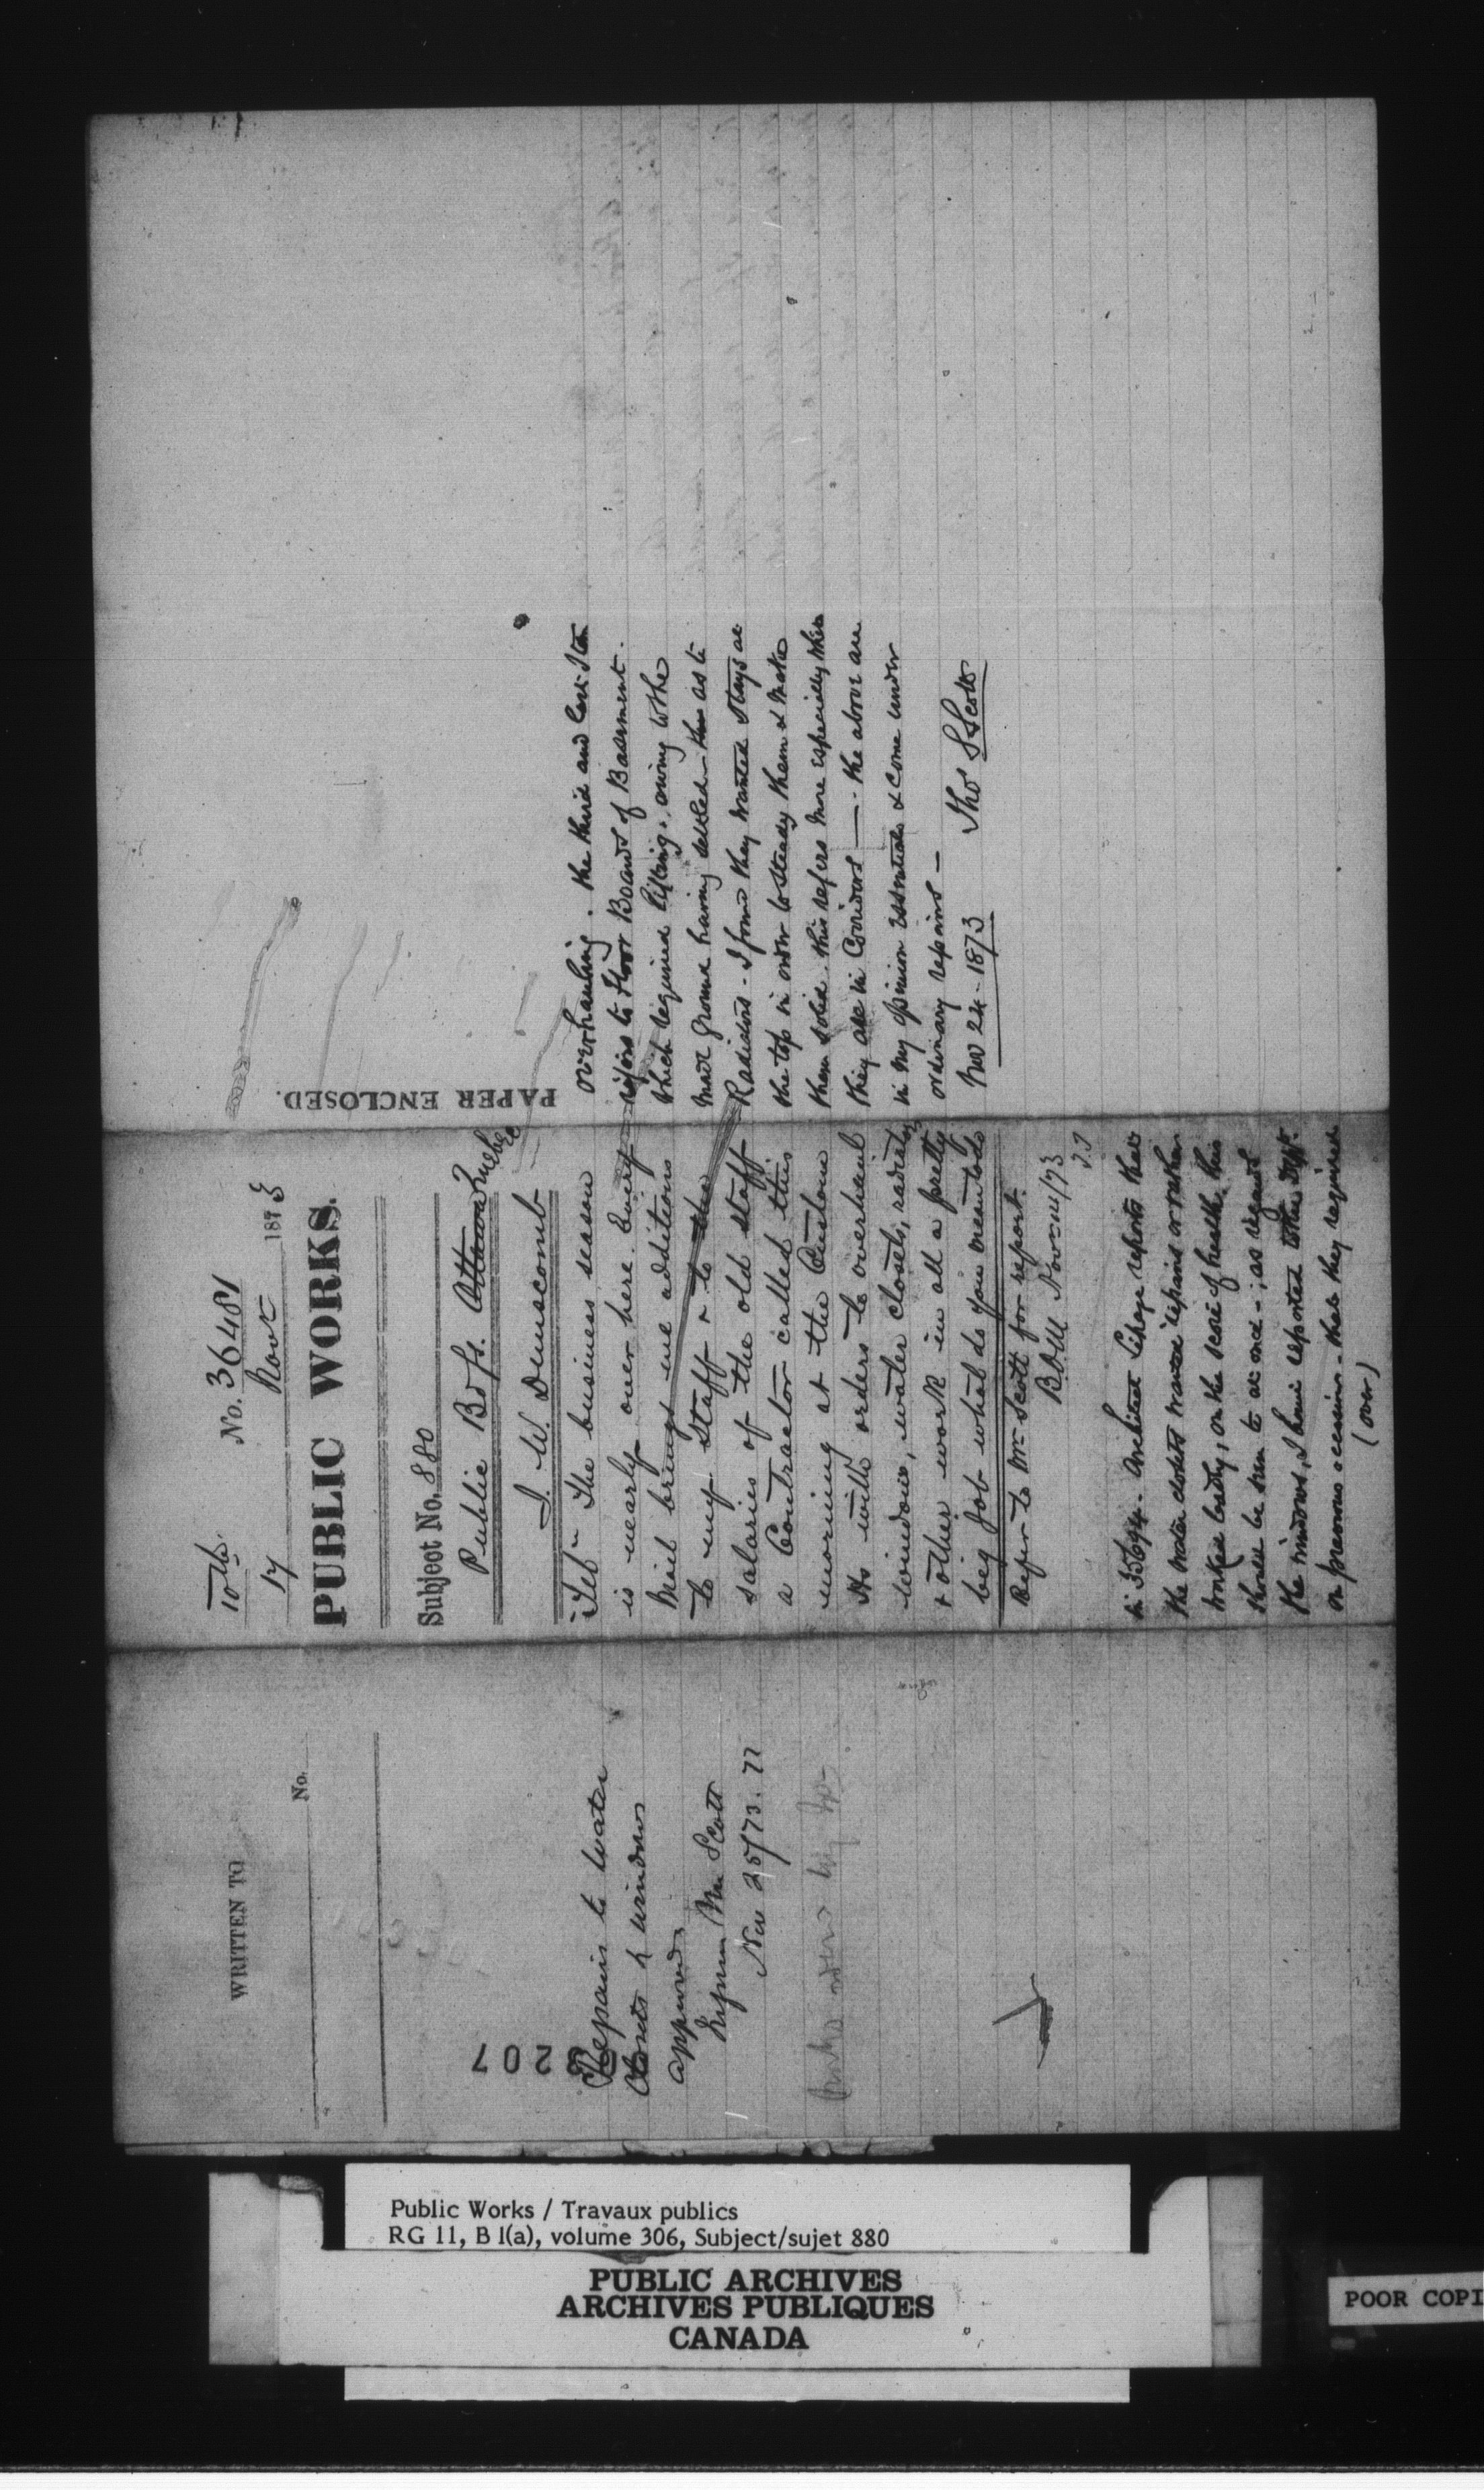 WRITTEN TO
No.
8207
Repairs to Water
Closets & windows
approved
Inform Mr Scott
Nov 25/73.
10th No. 36481
17 Nov 1873
PUBLIC WORKS.
Subject No. 880
Public Bdgs. Ottawa Quebec
J. W. Dunscomb
"Tel" The business season
is nearly over here. Every
Mail brings me additions
to my Staff & to the
salaries of the old staff
a Contractor called this
morning at the Custom
Ho with orders to overhaul
windows, water closets, radiators
& other work in all a pretty
big job what do you mean to do
Refer to Mr Scott for report.
Nov 24/73
in 35694. Architect Lepage reports that
the water closets wanted repairs or rather
worked badly, on the score of health, this
should be seen to at once; as regards
the windows, I have reported to the Dept.
on previous occasions that they required
(over)
PAPER ENCLOSED.
overhauling. the third and last Item
refers to Floor Boards of Basement.
which required lifting. owing to the
made ground having settled as to
Radiators - I found they wanted stays at
the top in order to steady them & make
them solid. this refers more especially where
they are in Corridors — the above are
in my opinion essentials & come under
ordinary repairs —
Nov 24 - 1873 Thos S Scott
Public Works / Travaux publics
RG 11, B 1(a), volume 306, Subject/sujet 880
PUBLIC ARCHIVES
ARCHIVES PUBLIQUES
CANADA
POOR COPI